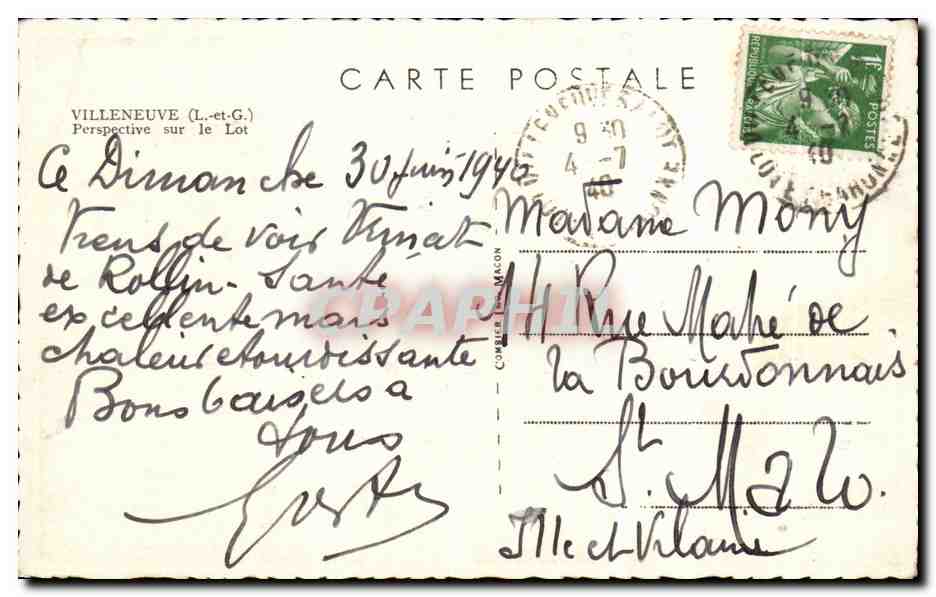 CARTE POSTALE
VILLENEUVE (L.-et-G.)
Perspective sur le Lot
Ce Dimanche 30 juin 1940
Viens de voir
de Rollin - Santé
excellente mais
chaleur étourdissante
Bons baisers a
tous
COMBIER IMP. MACON
CPAPHIL
9 30
4 -7
40
REPUBLIQUE FRANÇAISE
1F
POSTES
9 30
4 -7
40
LOT & GARONNE
Madame Mony
14 Rue Mahé de
la Bourdonnais
St. Malo.
Ille et Vilaine